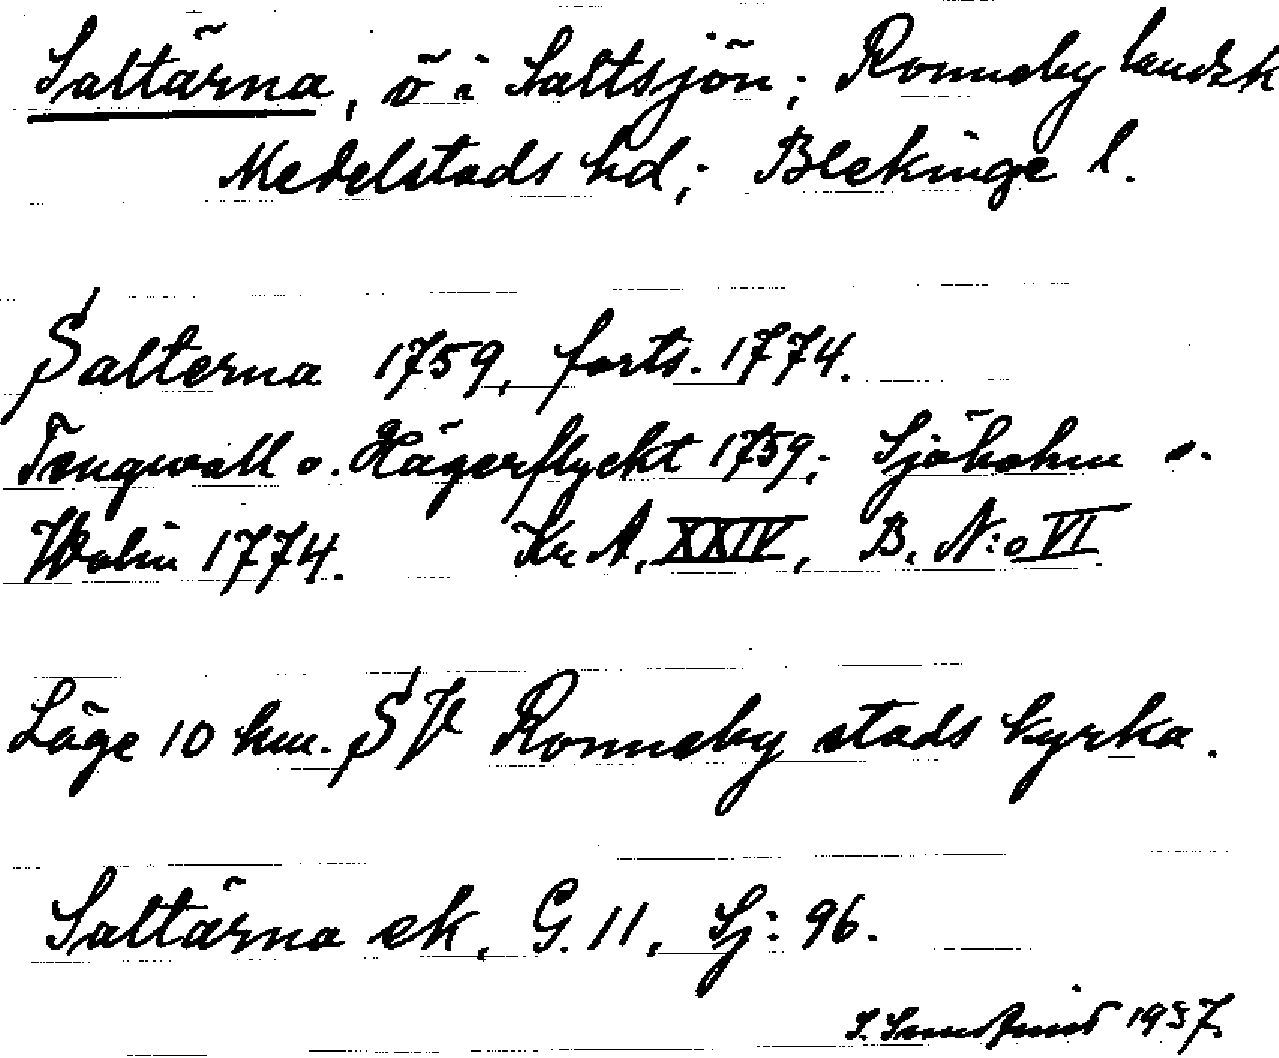 Saltärna, ö i Saltsjön; Ronneby landsk
Medelstads hd; Blekinge l.
Salterna 1759, forts. 1774.
Tengwall o. Hägerflyckt 1759; Sjöholm o.
Wolin 1774. Kr A, XXIV, B, N:o VI.
Läge 10 km. SV Ronneby stads kyrka.
Saltärna ek, G. 11, Sj: 96.
1937.